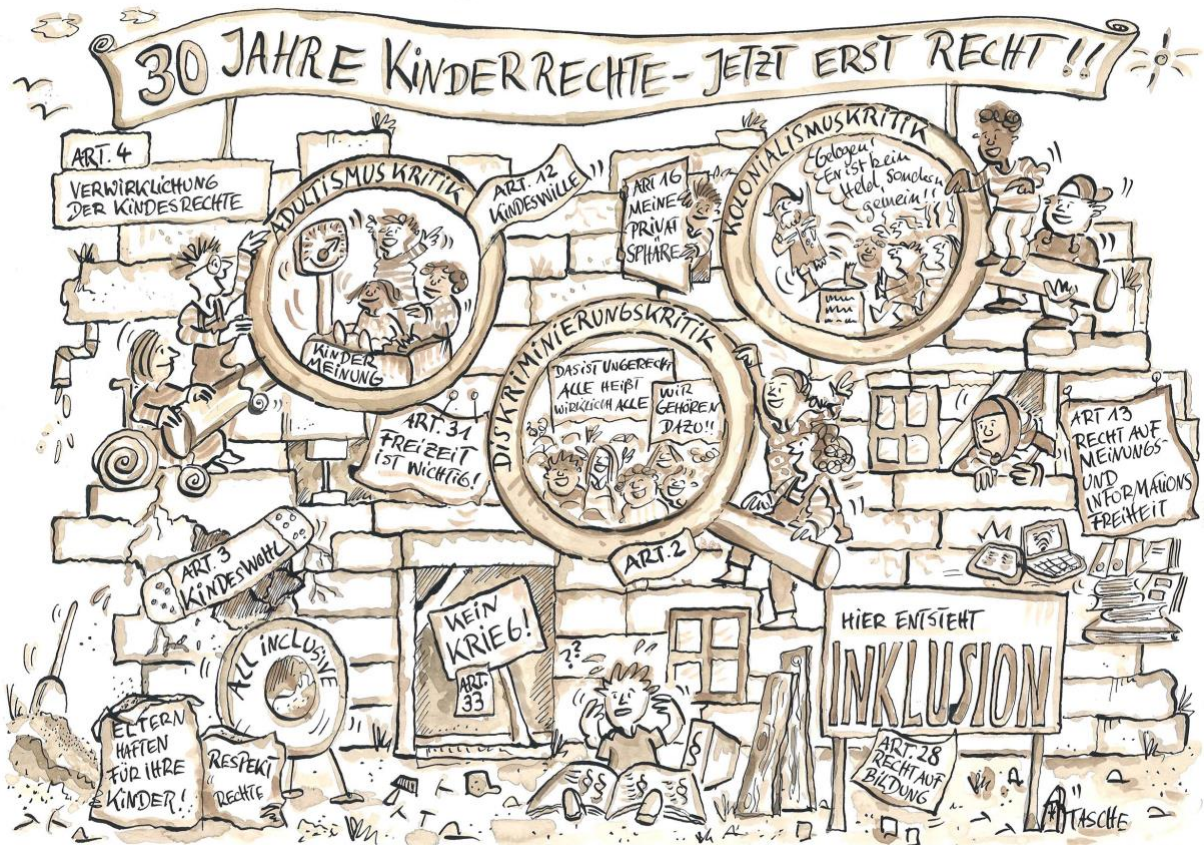 30 JAHRE KINDERRECHTE - JETZT ERST RECHT !!
ART. 4
VERWIRKLICHUNG
DER KINDESRECHTE
ADULTISMUSKRITIK
KINDER
MEINUNG
ART. 12
KINDESWILLE
ART 16
MEINE
PRIVAT
SPHÄRE
KOLONIALISMUSKRITIK
Gelogen!
Er ist kein
Held, sondern
gemein!!
DISKRIMINIERUNGSKRITIK
DAS IST UNGERECHT
ALLE HEIßT
WIRKLICH ALLE
WIR
GEHÖREN
DAZU!!
ART. 2
ART. 31
FREIZEIT
IST WICHTIG!
ART 13
RECHT AUF
MEINUNGS-
UND
INFORMATIONS
FREIHEIT
ART. 3
KINDESWOHL
ALL INCLUSIVE
ELTERN
HAFTEN
FÜR IHRE
KINDER!
RESPEKT
RECHTE
KEIN
KRIEG!
ART.
33
??
§ §
§ §
§
HIER ENTSTEHT
INKLUSION
ART. 28
RECHT AUF
BILDUNG
TASCHE